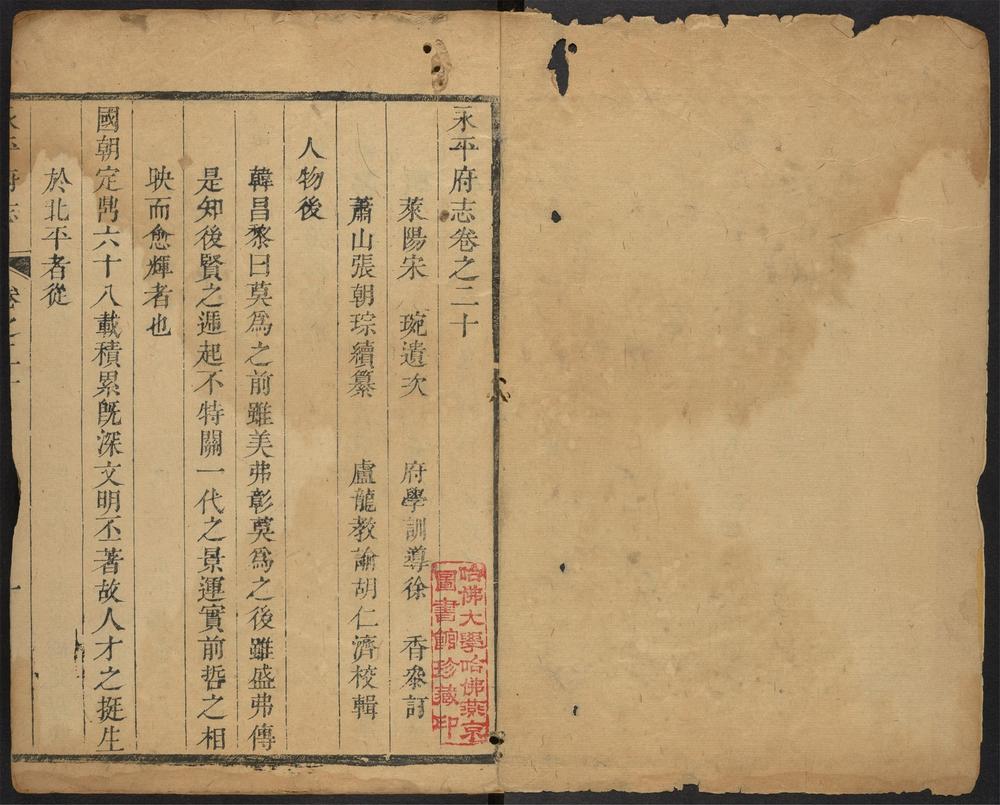 永平府志卷之二十
萊陽宋　琬遺次　　府學訓導徐　香叅訂
蕭山張朝琮續纂　　盧龍教諭胡仁濟校輯
人物後
韓昌黎曰莫爲之前雖美弗彰莫爲之後雖盛弗傳
是知後賢之遞起不特關一代之景運實前哲之相
映而愈輝者也
國朝定鼎六十八載積累旣深文明丕著故人才之挺生
於北平者從
永平府志　卷之二十　一
哈佛大學哈佛燕京
圖書館珍藏印